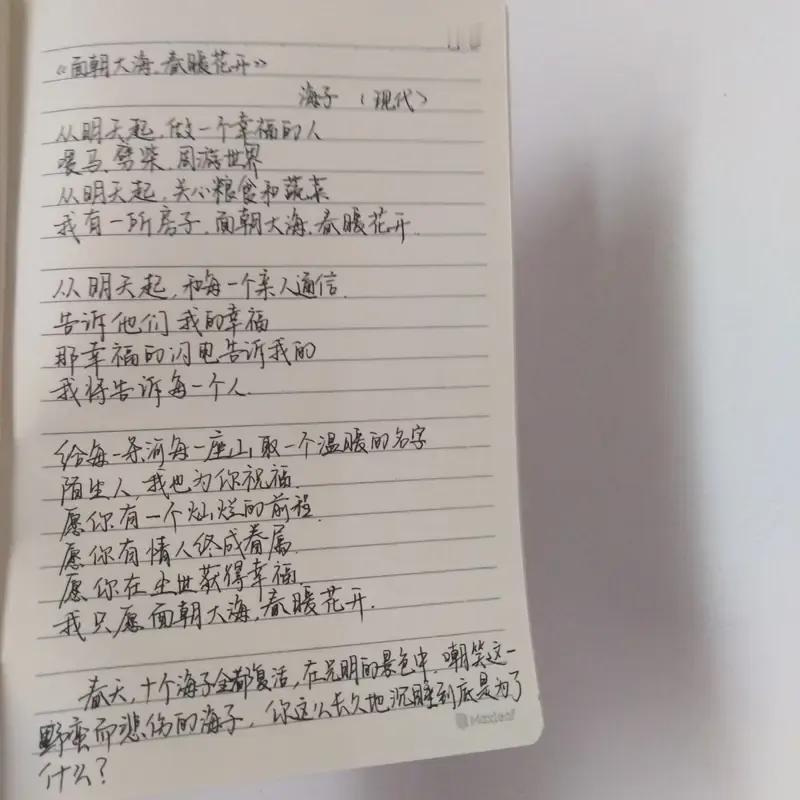 《面朝大海，春暖花开》
海子 （现代）
从明天起，做一个幸福的人
喂马、劈柴，周游世界
从明天起，关心粮食和蔬菜
我有一所房子，面朝大海，春暖花开.
从明天起，和每一个亲人通信.
告诉他们我的幸福
那幸福的闪电告诉我的
我将告诉每一个人.
给每一条河每一座山取一个温暖的名字
陌生人，我也为你祝福.
愿你有一个灿烂的前程.
愿你有情人终成眷属.
愿你在尘世获得幸福.
我只愿面朝大海，春暖花开.
春天，十个海子全都复活，在光明的景色中，嘲笑这一
野蛮而悲伤的海子，你这么长久地沉睡到底是为了
什么？
Maxleaf